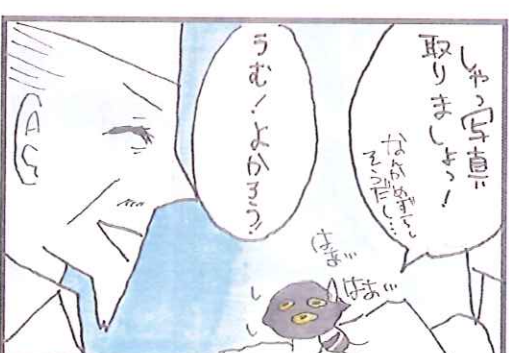 しゃっ写真
取りましょっ!
なかめずらし
そうだし…
うむ!よかろう!!
はぁ…
はぁ…